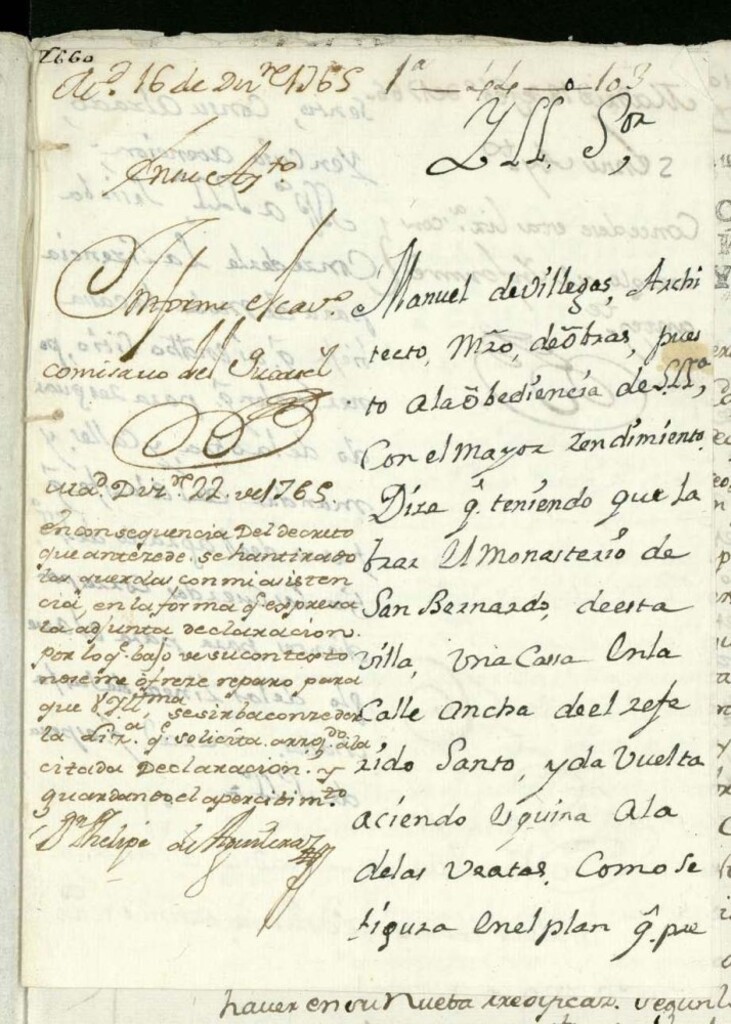 Md. 16 de Dizre 1765
1a 44 o 103
Yll. Sor
En su Aytto
Informe el cavo.
comisario del Quartel
Madd. Dizre. 22. de 1765.
en consequencia del decreto
que antezede. se han tirado
las querdas con mi asisten
cia, en la forma q. expresa
la adjunta declaracion.
por lo q. bajo de su contexto
no se me ofreze reparo para
que V Yllma. se sirba conzeder
la liza. q. solicita. arrogdo. a la
citada Declaracion. y
guardando el apercibimto.
Dn Phelipe de Aguilera
Manuel de Villegas, Archi
tecto, Mro, de obras, pues
to a la obediencia de S. Illa,
Con el mayor Rendimiento
Dize q. teniendo que la
brar El Monasterio de
San Bernardo, de esta
villa, vna Cassa En la
Calle Ancha de el refe
rido Santo, y da Vuelta
aciendo Esquina A la
de las Veatas, Como se
figura En el plan q. pre
hauer en su Nueba reedificaz. segun l